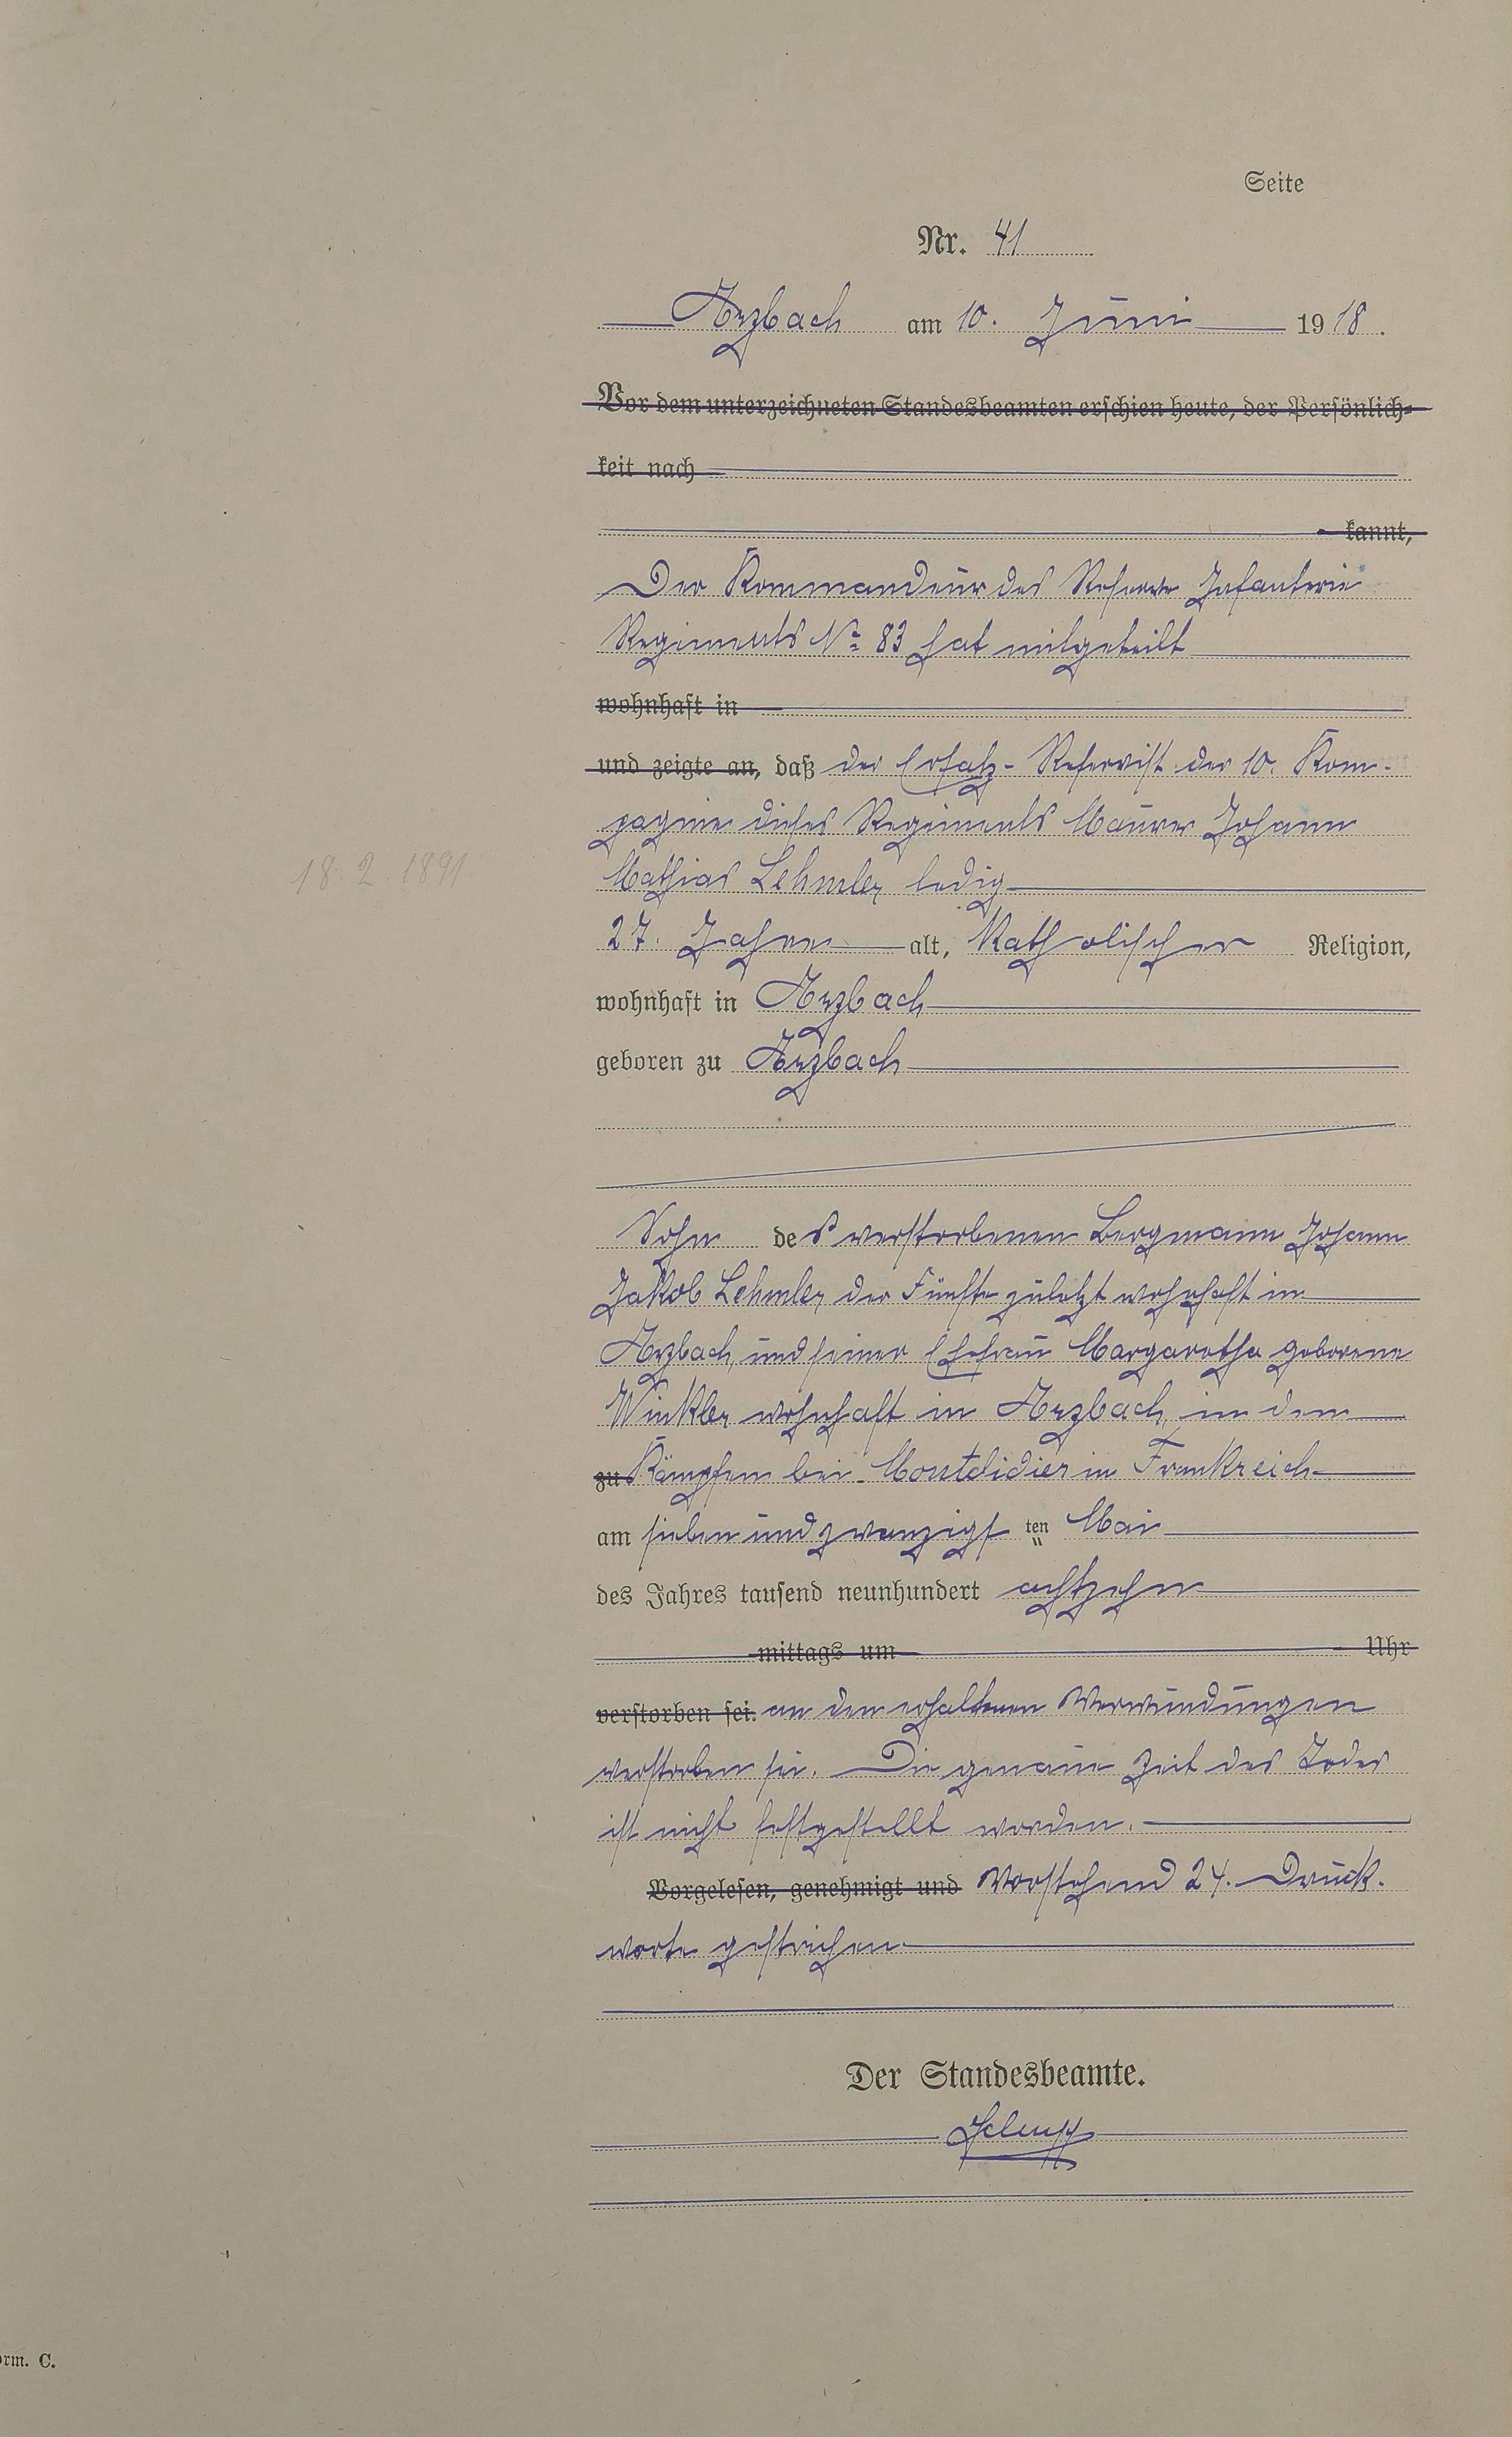 Seite
Nr. 41
Arzbach am 10. Juni 1918.
Vor dem unterzeichneten Standesbeamten erschien heute, der Persönlich-
keit nach
kannt,
Der Kommandeur des Reserve Infanterie
Regiments No 83 hat mitgeteilt
wohnhaft in
und zeigte an, daß der Ersatz-Reservist der 10. Kom-
pagnie dieses Regiments Maurer Johann
18.2.1891
Mathias Lehmler ledig
27. Jahre alt, Katholischer Religion,
wohnhaft in Arzbach
geboren zu Arzbach
Sohn des verstorbenen Bergmann Johann
Jakob Lehmler der Fünfte zuletzt wohnhaft in
Arzbach, und seiner Ehefrau Margaretha geborene
Winkler wohnhaft in Arzbach, in den
zu Kämpfen bei Montdidier in Frankreich
am sieben und zwanzigsten Mai
des Jahres tausend neunhundert achtzehn
mittags um Uhr
verstorben sei. an den erhaltenen Verwundungen
verstorben sei. Die genaue Zeit des Todes
ist nicht festgestellt worden.
Vorgelesen, genehmigt und Vorstehend 24. Druck-
worte gestrichen
Der Standesbeamte.
orm. C.